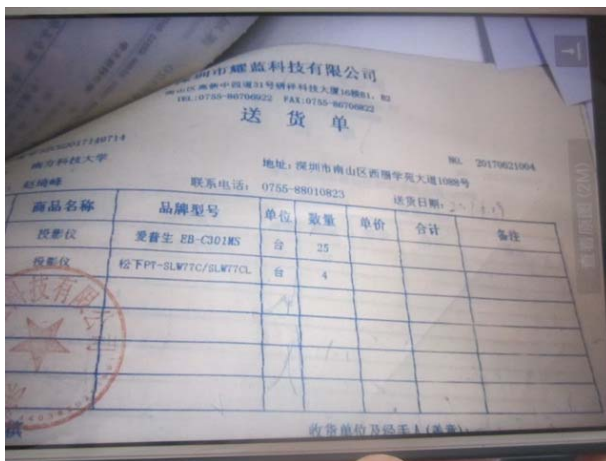 圳市耀蓝科技有限公司
南山区高新中四道31号
TEL:0755-86706922 FAX:0755-86706822
送 货 单
NO. 20170621004
南方科技大学 地址：深圳市南山区西丽学苑大道1088号
联系电话： 0755-88010823 送货日期：
商品名称 品牌型号 单位 数量 单价 合计 备注
投影仪 爱普生 EB-C301MS 台 25
投影仪 松下PT-SLW77C/SLW77CL 台 4
科技有限公司
收货单位及经手人(盖章)：
查看原图(2M)